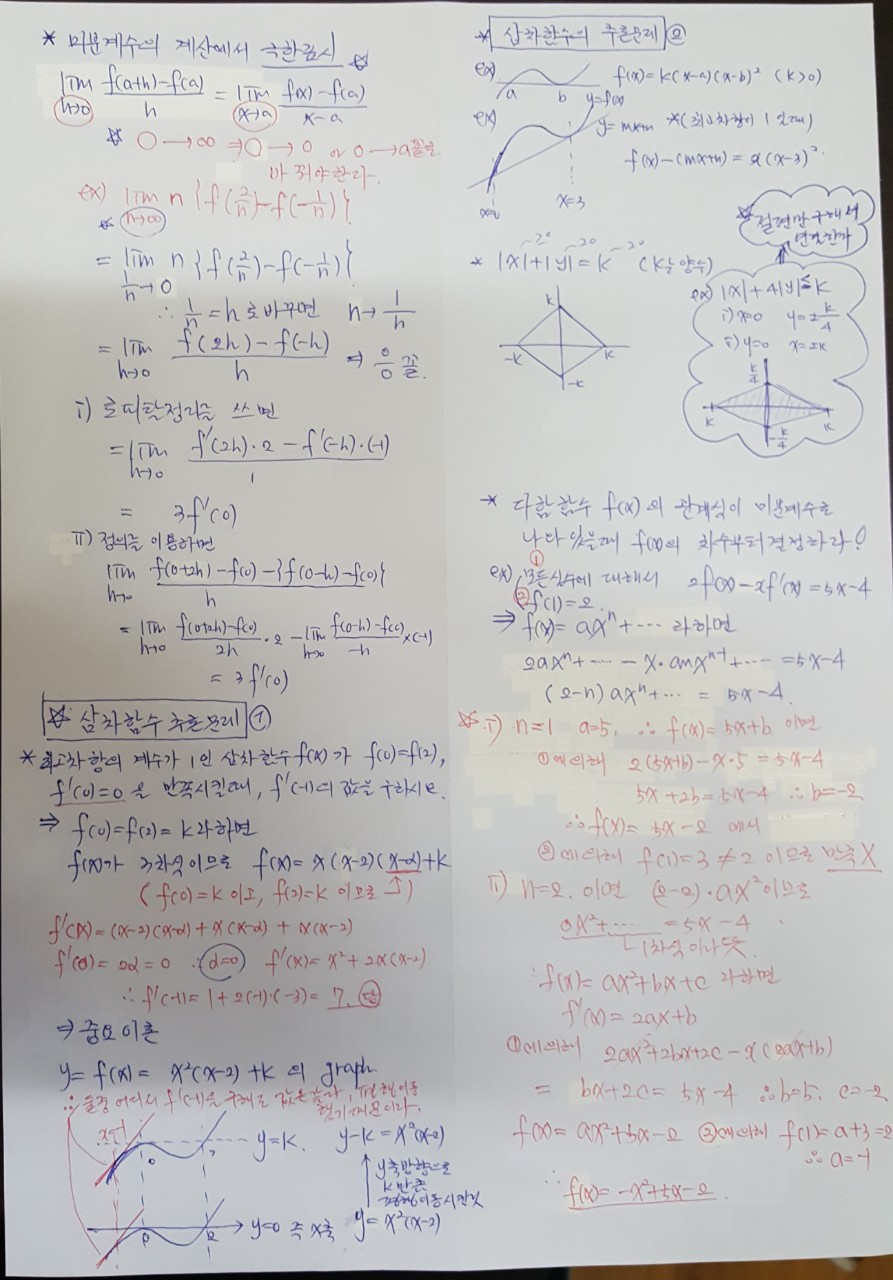 * 미분계수의 계산에서 극한금시
lim h→0 f(a+h)-f(a) / h = lim x→a f(x)-f(a) / x-a
☆ ○→∞ ⇒ ○→0 or ○→a꼴로
바꿔야한다.
ex) lim n→∞ n{f(2/n)-f(-1/n)}
= lim 1/n→0 n{f(2/n)-f(-1/n)}
∴ 1/n=h로 바꾸면 n→1/h
= lim h→0 f(2h)-f(-h) / h ⇒ 0/0 꼴.
i) 로피탈정리를 쓰면
= lim h→0 f'(2h)·2-f'(-h)·(-1) / 1
= 3f'(0)
ii) 정의를 이용하면
lim h→0 f(0+2h)-f(0)-{f(0-h)-f(0)} / h
= lim h→0 f(0+2h)-f(0) / 2h ·2 - lim h→0 f(0-h)-f(0) / -h ×(-1)
= 3f'(0)
☆ 삼차함수 추론문제 ①
* 최고차항의 계수가 1인 삼차함수 f(x)가 f(0)=f(2),
f'(0)=0을 만족시킬때, f'(-1)의 값을 구하시오.
⇒ f(0)=f(2)=k라하면
f(x)가 3차식이므로 f(x)=x(x-2)(x-α)+k
(f(0)=k이고, f(2)=k이므로 ↑)
f'(x)=(x-2)(x-α)+x(x-α)+x(x-2)
f'(0)=2α=0 ∴ α=0 f'(x)=x²+2x(x-2)
∴ f'(-1)=1+2(-1)·(-3)=7. 답
⇒ 중요이론
y=f(x)=x²(x-2)+k의 graph
∴ 어디서 f'(-1)을 구해도 값은 같다, 평행이동
했기 때문이다.
x=-1
0 2 y=k. y-k=x²(x-2)
y축방향으로
k만큼
평행이동시킨것
0 2 y=0 즉 x축 y=x²(x-2)
* 삼차함수의 추론문제 ②
ex) a b f(x)=k(x-a)(x-b)² (k>0)
y=f(x)
ex) y=mx+n *(최고차항이 1일때)
f(x)-(mx+n)=x(x-3)²
x=0 x=3
☆ 절편만 구해서
연결한다
* |x|+|y|=k (k는 양수)
k
-k k
-k
ex) |x|+4|y|≤k
i) x=0 y=±k/4
ii) y=0 x=±k
k/4
k k
-k/4
* 다항함수 f(x)의 관계식이 미분계수로
나타있을때 f(x)의 차수부터 결정하라!
ex) ① 모든실수에 대해서 2f(x)-xf'(x)=5x-4
② f(1)=2.
⇒ f(x)=axⁿ+… 라하면
2axⁿ+… -x·anxⁿ⁻¹+… =5x-4
(2-n)axⁿ+… = 5x-4.
☆ i) n=1 a=5, ∴ f(x)=5x+b 이면
①에의해 2(5x+b)-x·5=5x-4
5x+2b=5x-4 ∴b=-2
∴ f(x)=5x-2 에서
②에의해 f(1)=3≠2 이므로 만족X
ii) n=2. 이면 (2-2)·ax²이므로
0x²+… =5x-4
1차식이나옷
∴ f(x)=ax²+bx+c 라하면
f'(x)=2ax+b
①에의해 2ax²+2bx+2c-x(2ax+b)
= bx+2c=5x-4 ∴b=5, c=-2
f(x)=ax²+5x-2 ②에의해 f(1)=a+3=2
∴ a=-1
∴ f(x)=-x²+5x-2